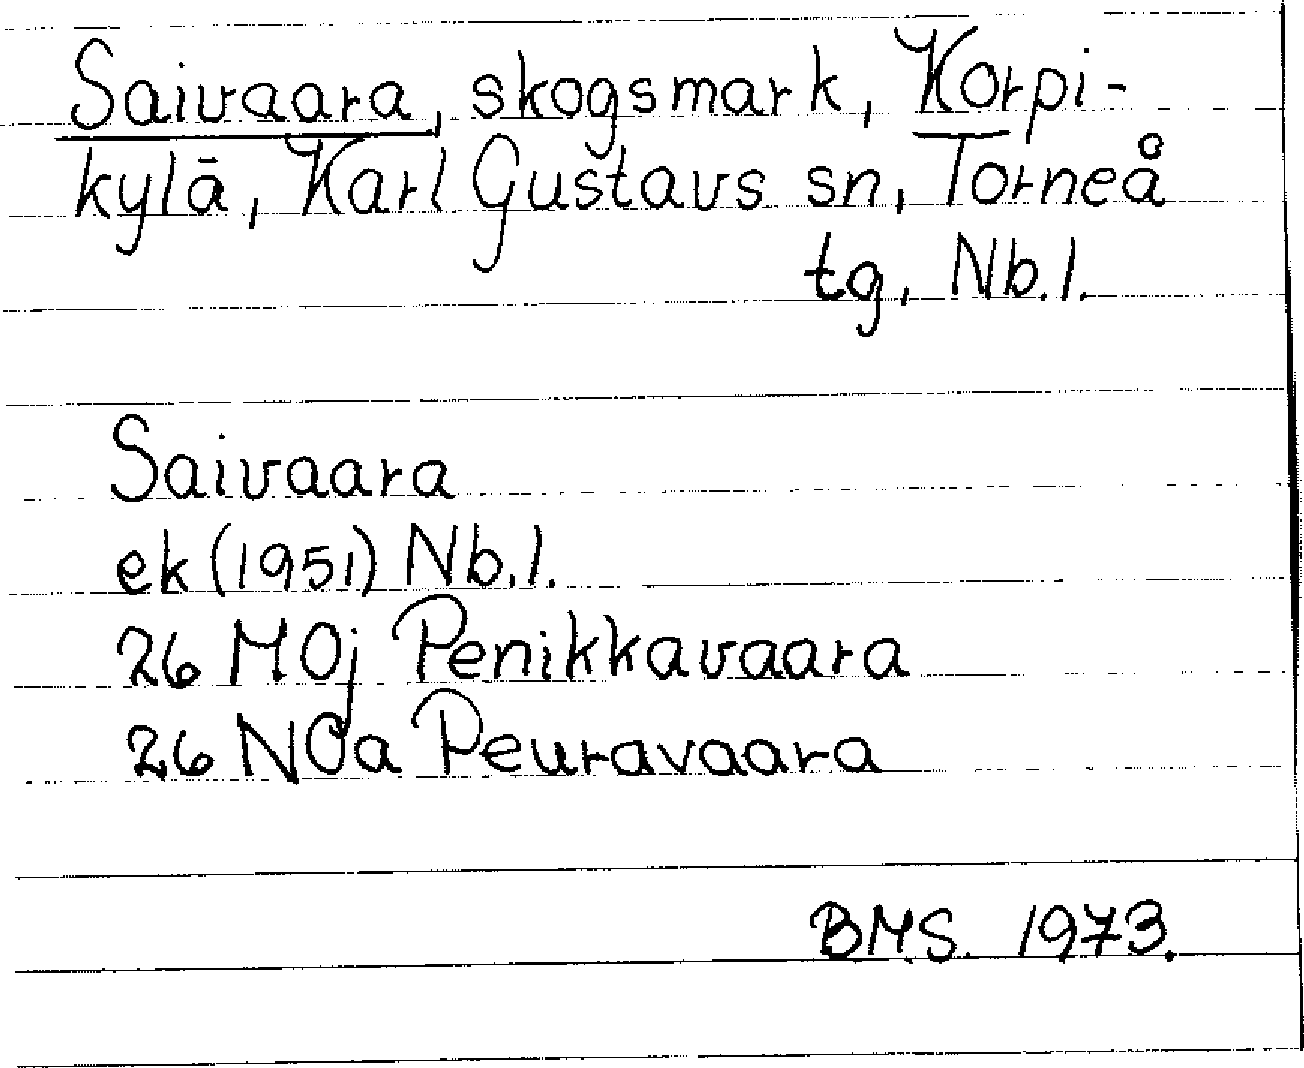 Saivaara, skogsmark, Korpi-
kylä, Karl Gustavs sn, Torneå
tg, Nb.l.
Saivaara
ek (1951) Nb.l.
26 M0j Penikkavaara
26 N0a Peuravaara
BMS. 1973.